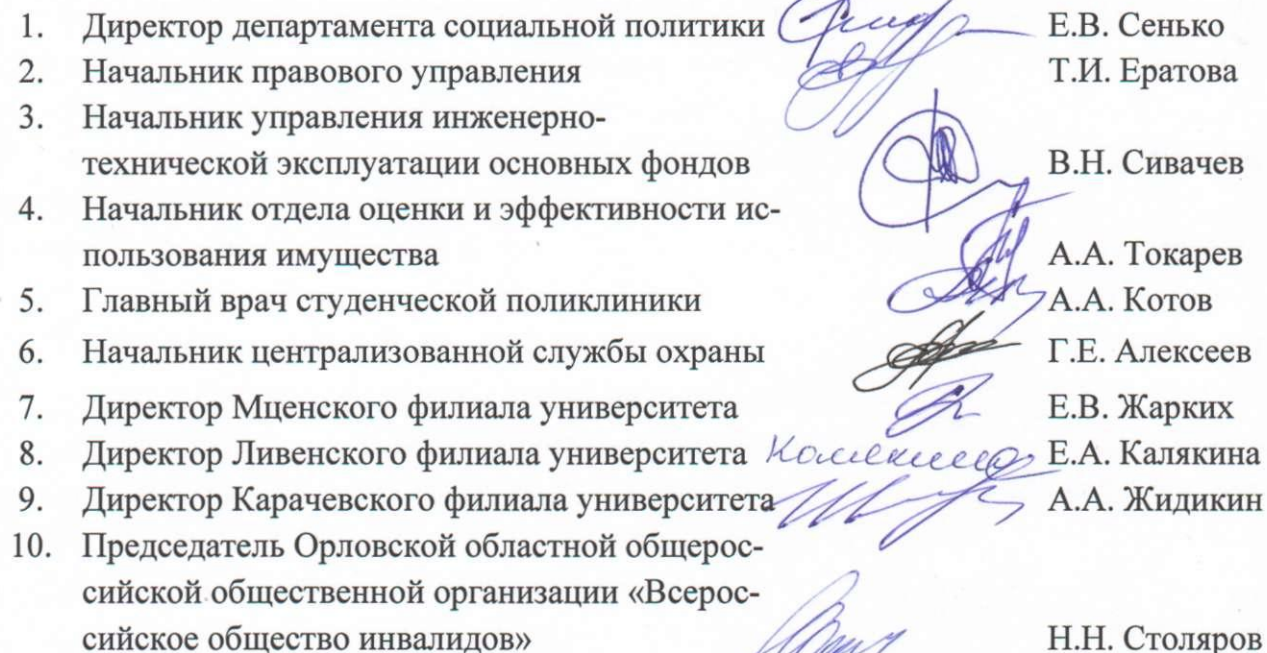 1. Директор департамента социальной политики Е.В. Сенько
2. Начальник правового управления Т.И. Ератова
3. Начальник управления инженерно-
технической эксплуатации основных фондов В.Н. Сивачев
4. Начальник отдела оценки и эффективности ис-
пользования имущества А.А. Токарев
5. Главный врач студенческой поликлиники А.А. Котов
6. Начальник централизованной службы охраны Г.Е. Алексеев
7. Директор Мценского филиала университета Е.В. Жарких
8. Директор Ливенского филиала университета Е.А. Калякина
9. Директор Карачевского филиала университета А.А. Жидикин
10. Председатель Орловской областной общерос-
сийской общественной организации «Всерос-
сийское общество инвалидов» Н.Н. Столяров